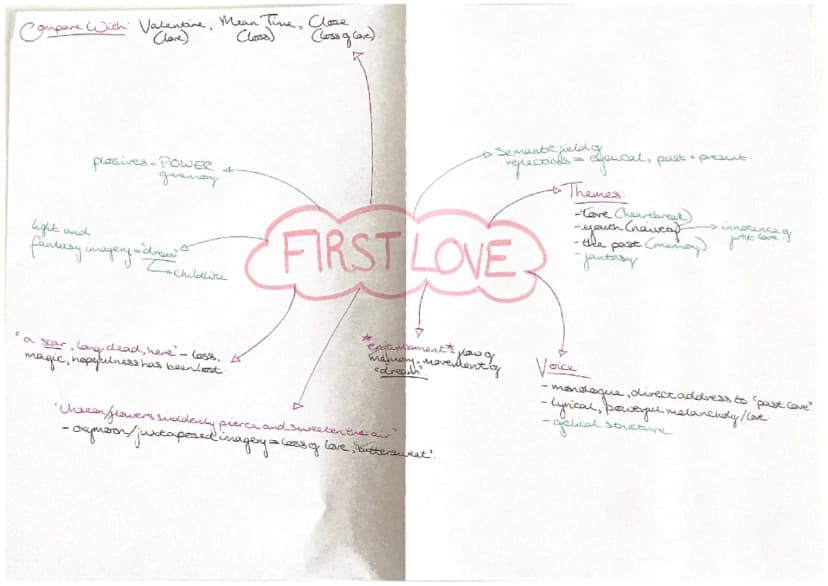 Compare With: Valentine, Mean Time, Close
(love) (loss) (loss of love)
plosives = POWER
of memory
Semantic field of
reflections = cyclical, past + present
Themes:
- Love (heartbreak)
- youth (naivety)
innocence of
first love.
- the past (memory)
- fantasy
light and
fantasy imagery = "dream"
childlike
FIRST LOVE
"a star, long dead, here" - loss,
magic, hopefulness has been lost.
*enjambment* flow of
memory, movement of
"dream"
Voice
- monologue, direct address to "past love"
- lyrical, powerful melancholy/love
- cyclical structure
"Unseen/flowers suddenly pierce and sweeten the air"
- oxymoron/juxtaposed imagery = loss of love, 'bittersweet'.